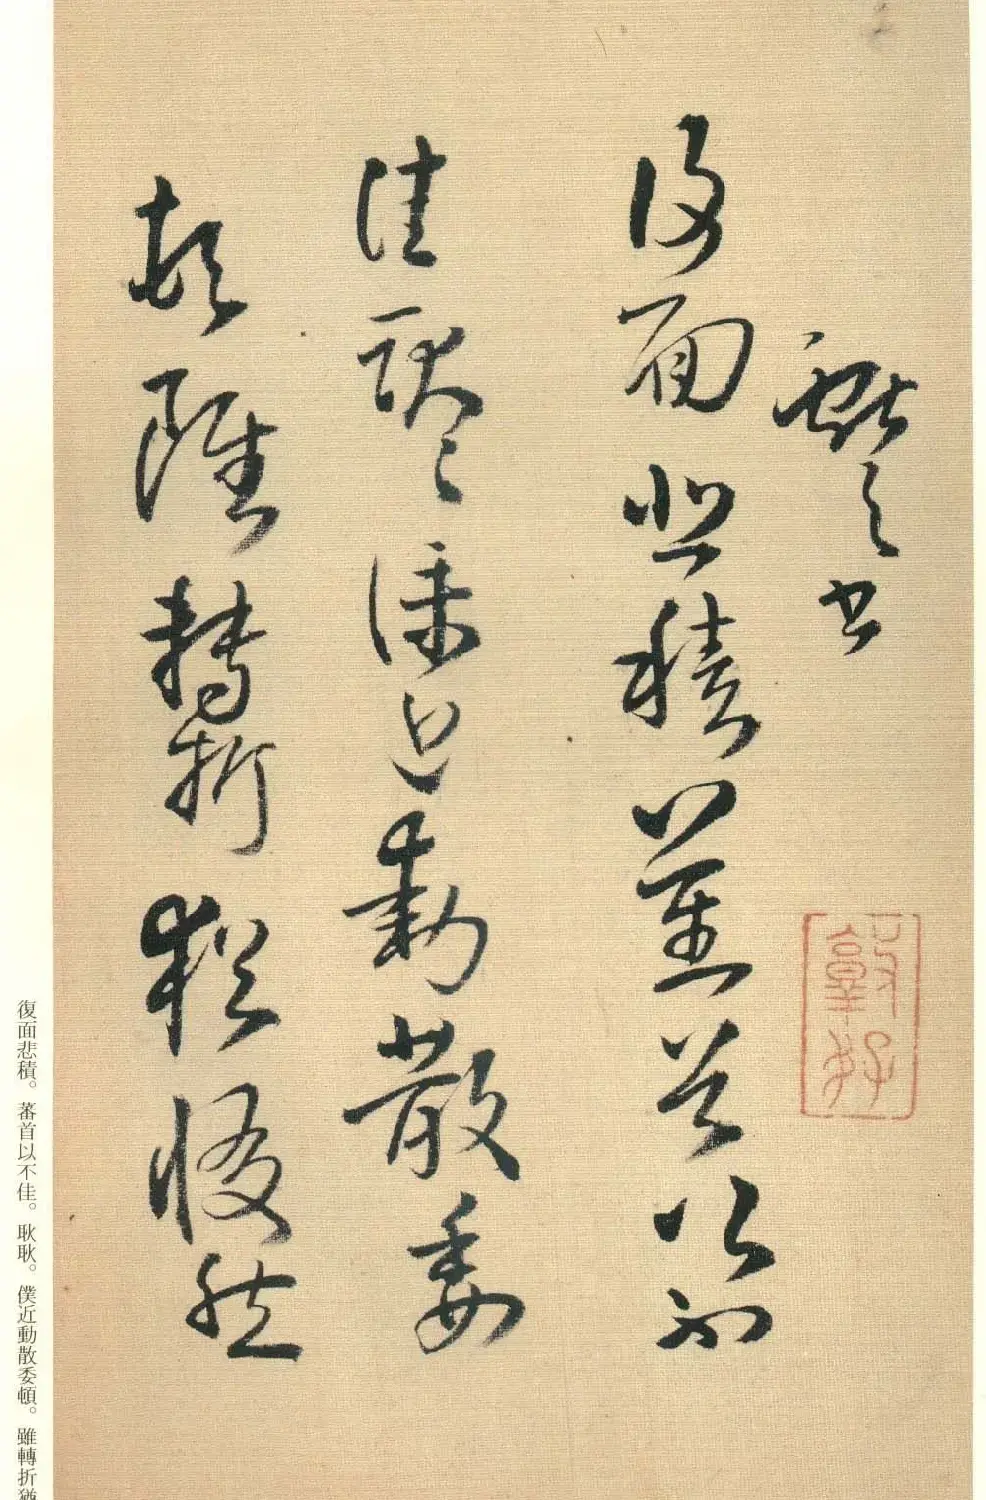 獻之書
復面悲積蕃首以不
佳耿耿僕近動散委
頓雖轉折猶惙然
復面悲積。蕃首以不佳。耿耿。僕近動散委頓。雖轉折猶